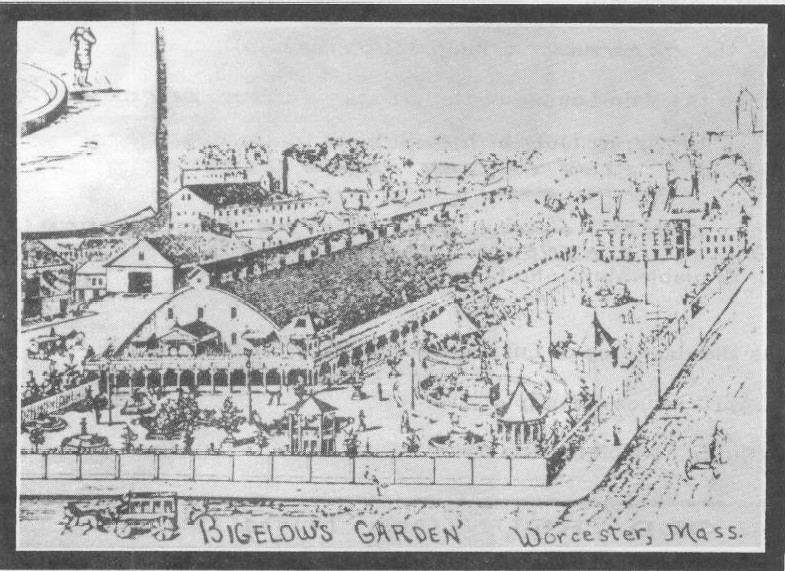 BIGELOW'S GARDEN' Worcester, Mass.